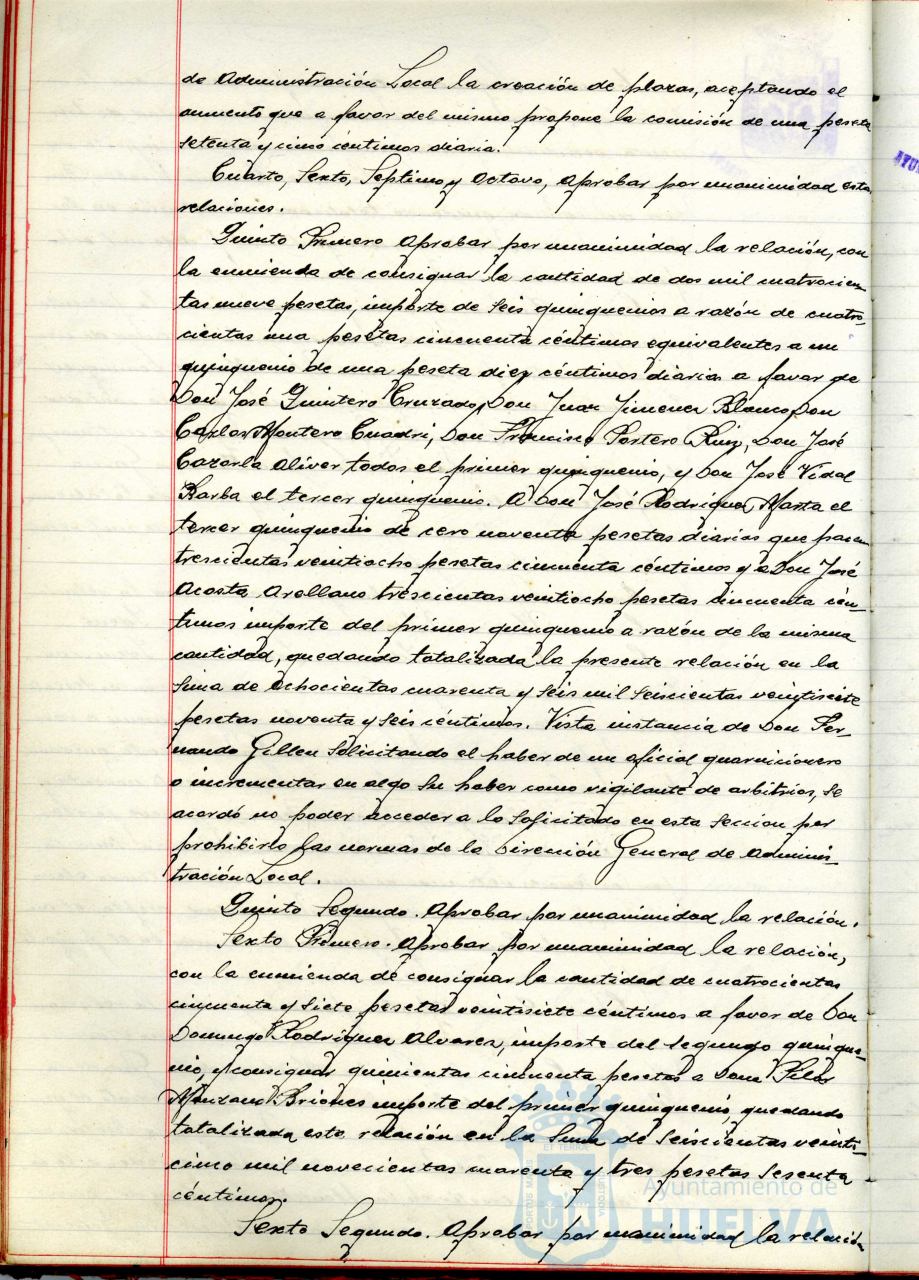 de Administración Local la creación de plazas, aceptando el
aumento que a favor del mismo propone la comisión de una peseta
setenta y cinco céntimos diaria.
Cuarto, Sexto, Septimo y Octavo, aprobar por unanimidad estas
relaciones.
Quinto Primero aprobar por unanimidad la relación, con
la enmienda de consignar la cantidad de dos mil cuatrocien
tas nueve pesetas, importe de seis quinquenios a razón de cuatro-
cientas una pesetas cincuenta céntimos equivalentes a un
quinquenio de una peseta diez céntimos diaria a favor de
Don José Quintero Cruzado, Don Juan Jimenez Blanco, Don
Carlos Montero Cuadri, Don Francisco Portero Ruiz, Don José
Cazorla Oliver todos el primer quinquenio, y Don José Vidal
Barba el tercer quinquenio. A Don José Rodriguez Marta el
tercer quinquenio de cero noventa pesetas diarias que hacen
trescientas veintiocho pesetas cincuenta céntimos y a Don José
Acosta Arellano trescientas veintiocho pesetas cincuenta cén-
timos importe del primer quinquenio a razón de la misma
cantidad, quedando totalizada la presente relación en la
suma de ochocientas cuarenta y seis mil seiscientas veintisiete
pesetas noventa y seis céntimos. Vista instancia de Don Fer-
nando Gillen solicitando el haber de un oficial guarnicionero
o incrementar en algo su haber como vigilante de arbitrios, se
acordó no poder acceder a lo solicitado en esta seccion por
prohibirlo las normas de la Dirección General de Adminis-
tración Local.
Quinto Segundo. Aprobar por unanimidad la relación.
Sexto Primero. Aprobar por unanimidad la relación,
con la enmienda de consignar la cantidad de cuatrocientas
cincuenta y siete pesetas veintisiete céntimos a favor de Don
Domingo Rodriguez Alvarez, importe del segundo quinque-
nio, y consignar quinientas cincuenta pesetas a Doña Pilar
Manzano Briones importe del primer quinquenio, quedando
totalizada esta relación en la suma de seiscientas veinti-
cinco mil novecientas cuarenta y tres pesetas sesenta
céntimos.
Sexto Segundo. Aprobar por unanimidad la relación
Ayuntamiento de
HUELVA